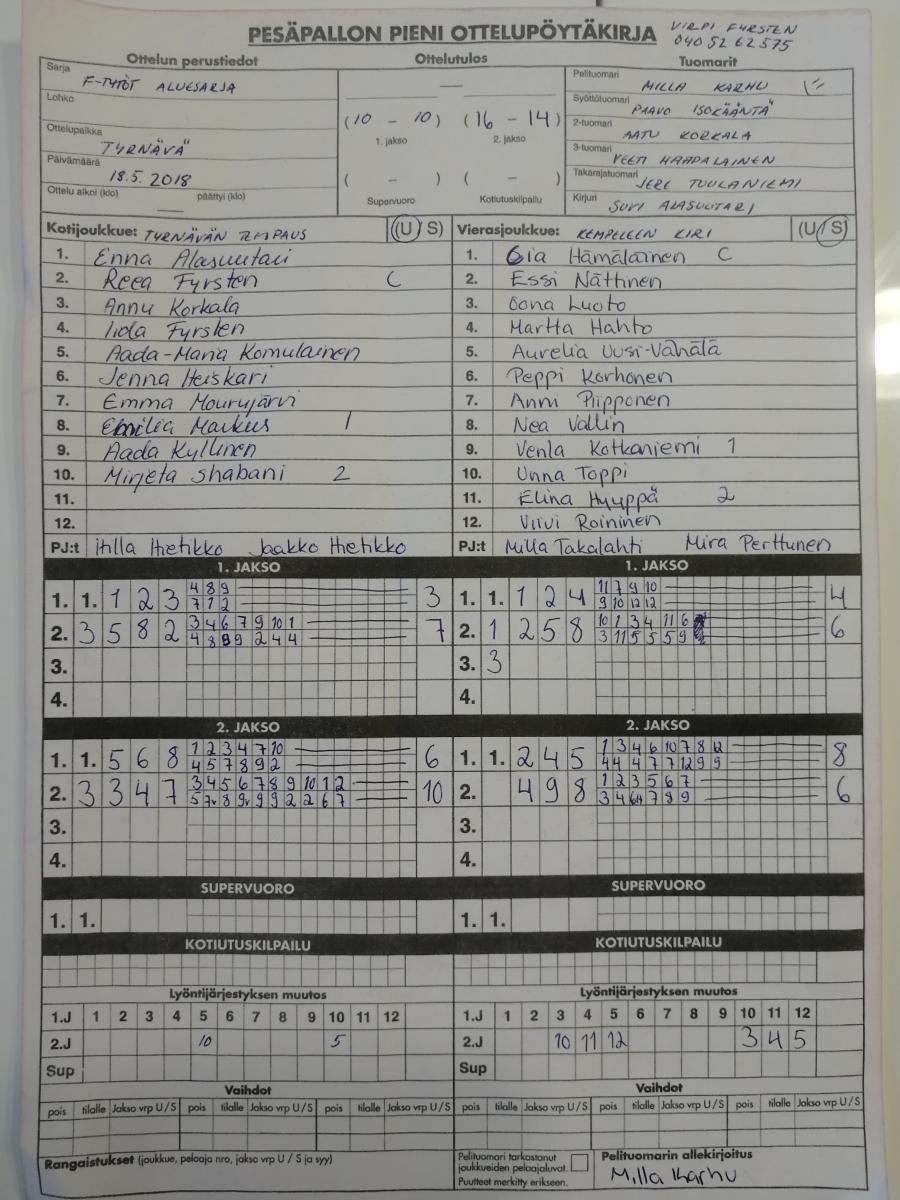 PESÄPALLON PIENI OTTELUPÖYTÄKIRJA
VIRPI FYRSTEN
040 52 62 575
Ottelun perustiedot Ottelutulos Tuomarit
Sarja F-TYTÖT ALUESARJA
Lohko
Ottelupaikka TYRNÄVÄ
Päivämäärä 18.5.2018
Ottelu alkoi (klo) päättyi (klo)
—
(10 - 10) (16 - 14)
1. jakso 2. jakso
( - ) ( - )
Supervuoro Kotiutuskilpailu
Pelituomari MILLA KARHU
Syöttötuomari PAAVO ISOKÄÄNTÄ
2-tuomari AATU KORKALA
3-tuomari VEETI HAAPALAINEN
Takarajatuomari JERE TUULANIEMI
Kirjuri SUVI ALASUUTARI
Kotijoukkue: TYRNÄVÄN TEMPAUS (U / S)
1. Enna Alasuutari
2. Reea Fyrsten C
3. Annu Korkala
4. Iida Fyrsten
5. Aada-Maria Komulainen
6. Jenna Heiskari
7. Emma Mourujärvi
8. Emilia Markus 1
9. Aada Kyllinen
10. Mirjeta Shabani 2
11.
12.
PJ:t Hilla Hietikko Jaakko Hietikko
Vierasjoukkue: KEMPELEEN KIRI (U / S)
1. Gia Hämäläinen C
2. Essi Nättinen
3. Oona Luoto
4. Martta Hahto
5. Aurelia Uusi-Vähälä
6. Peppi Korhonen
7. Anni Piipponen
8. Nea Vallin
9. Venla Kotkaniemi 1
10. Unna Toppi
11. Elina Hyyppä 2
12. Viivi Roininen
PJ:t Milla Takalahti Mira Perttunen
1. JAKSO
1. 1. 1 2 3 4 8 9 3
7 1 2
2. 3 5 8 2 3 4 6 7 9 10 1 7
4 8 9 9 2 4 4
3.
4.
1. JAKSO
1. 1. 1 2 4 11 7 9 10 4
9 10 12 12
2. 1 2 5 8 10 1 3 4 11 6 6
3 11 5 5 5 9
3. 3
4.
2. JAKSO
1. 1. 5 6 8 1 2 3 4 7 10 6
4 5 7 8 9 2
2. 3 3 4 7 3 4 5 6 7 8 9 10 1 2 10
5 7v 8 9v 9 9 2 2 6 7
3.
4.
2. JAKSO
1. 1. 2 4 5 1 3 4 6 10 7 8 12 8
4 4 4 7 7 12 9 9
2. 4 9 8 1 2 3 5 6 7 6
3 4 7 8 9
3.
4.
SUPERVUORO SUPERVUORO
1. 1. 1. 1.
KOTIUTUSKILPAILU KOTIUTUSKILPAILU
Lyöntijärjestyksen muutos Lyöntijärjestyksen muutos
1.J 1 2 3 4 5 6 7 8 9 10 11 12 1.J 1 2 3 4 5 6 7 8 9 10 11 12
2.J 10 5 2.J 10 11 12 3 4 5
Sup Sup
Vaihdot Vaihdot
pois tilalle Jakso vrp U / S pois tilalle Jakso vrp U / S pois tilalle Jakso vrp U / S pois tilalle Jakso vrp U / S pois tilalle Jakso vrp U / S pois tilalle Jakso vrp U / S
Rangaistukset (joukkue, pelaaja nro, jakso vrp U / S ja syy)
Pelituomari tarkastanut
joukkueiden pelaajaluvat.
Puutteet merkitty erikseen.
Pelituomarin allekirjoitus
Milla Karhu